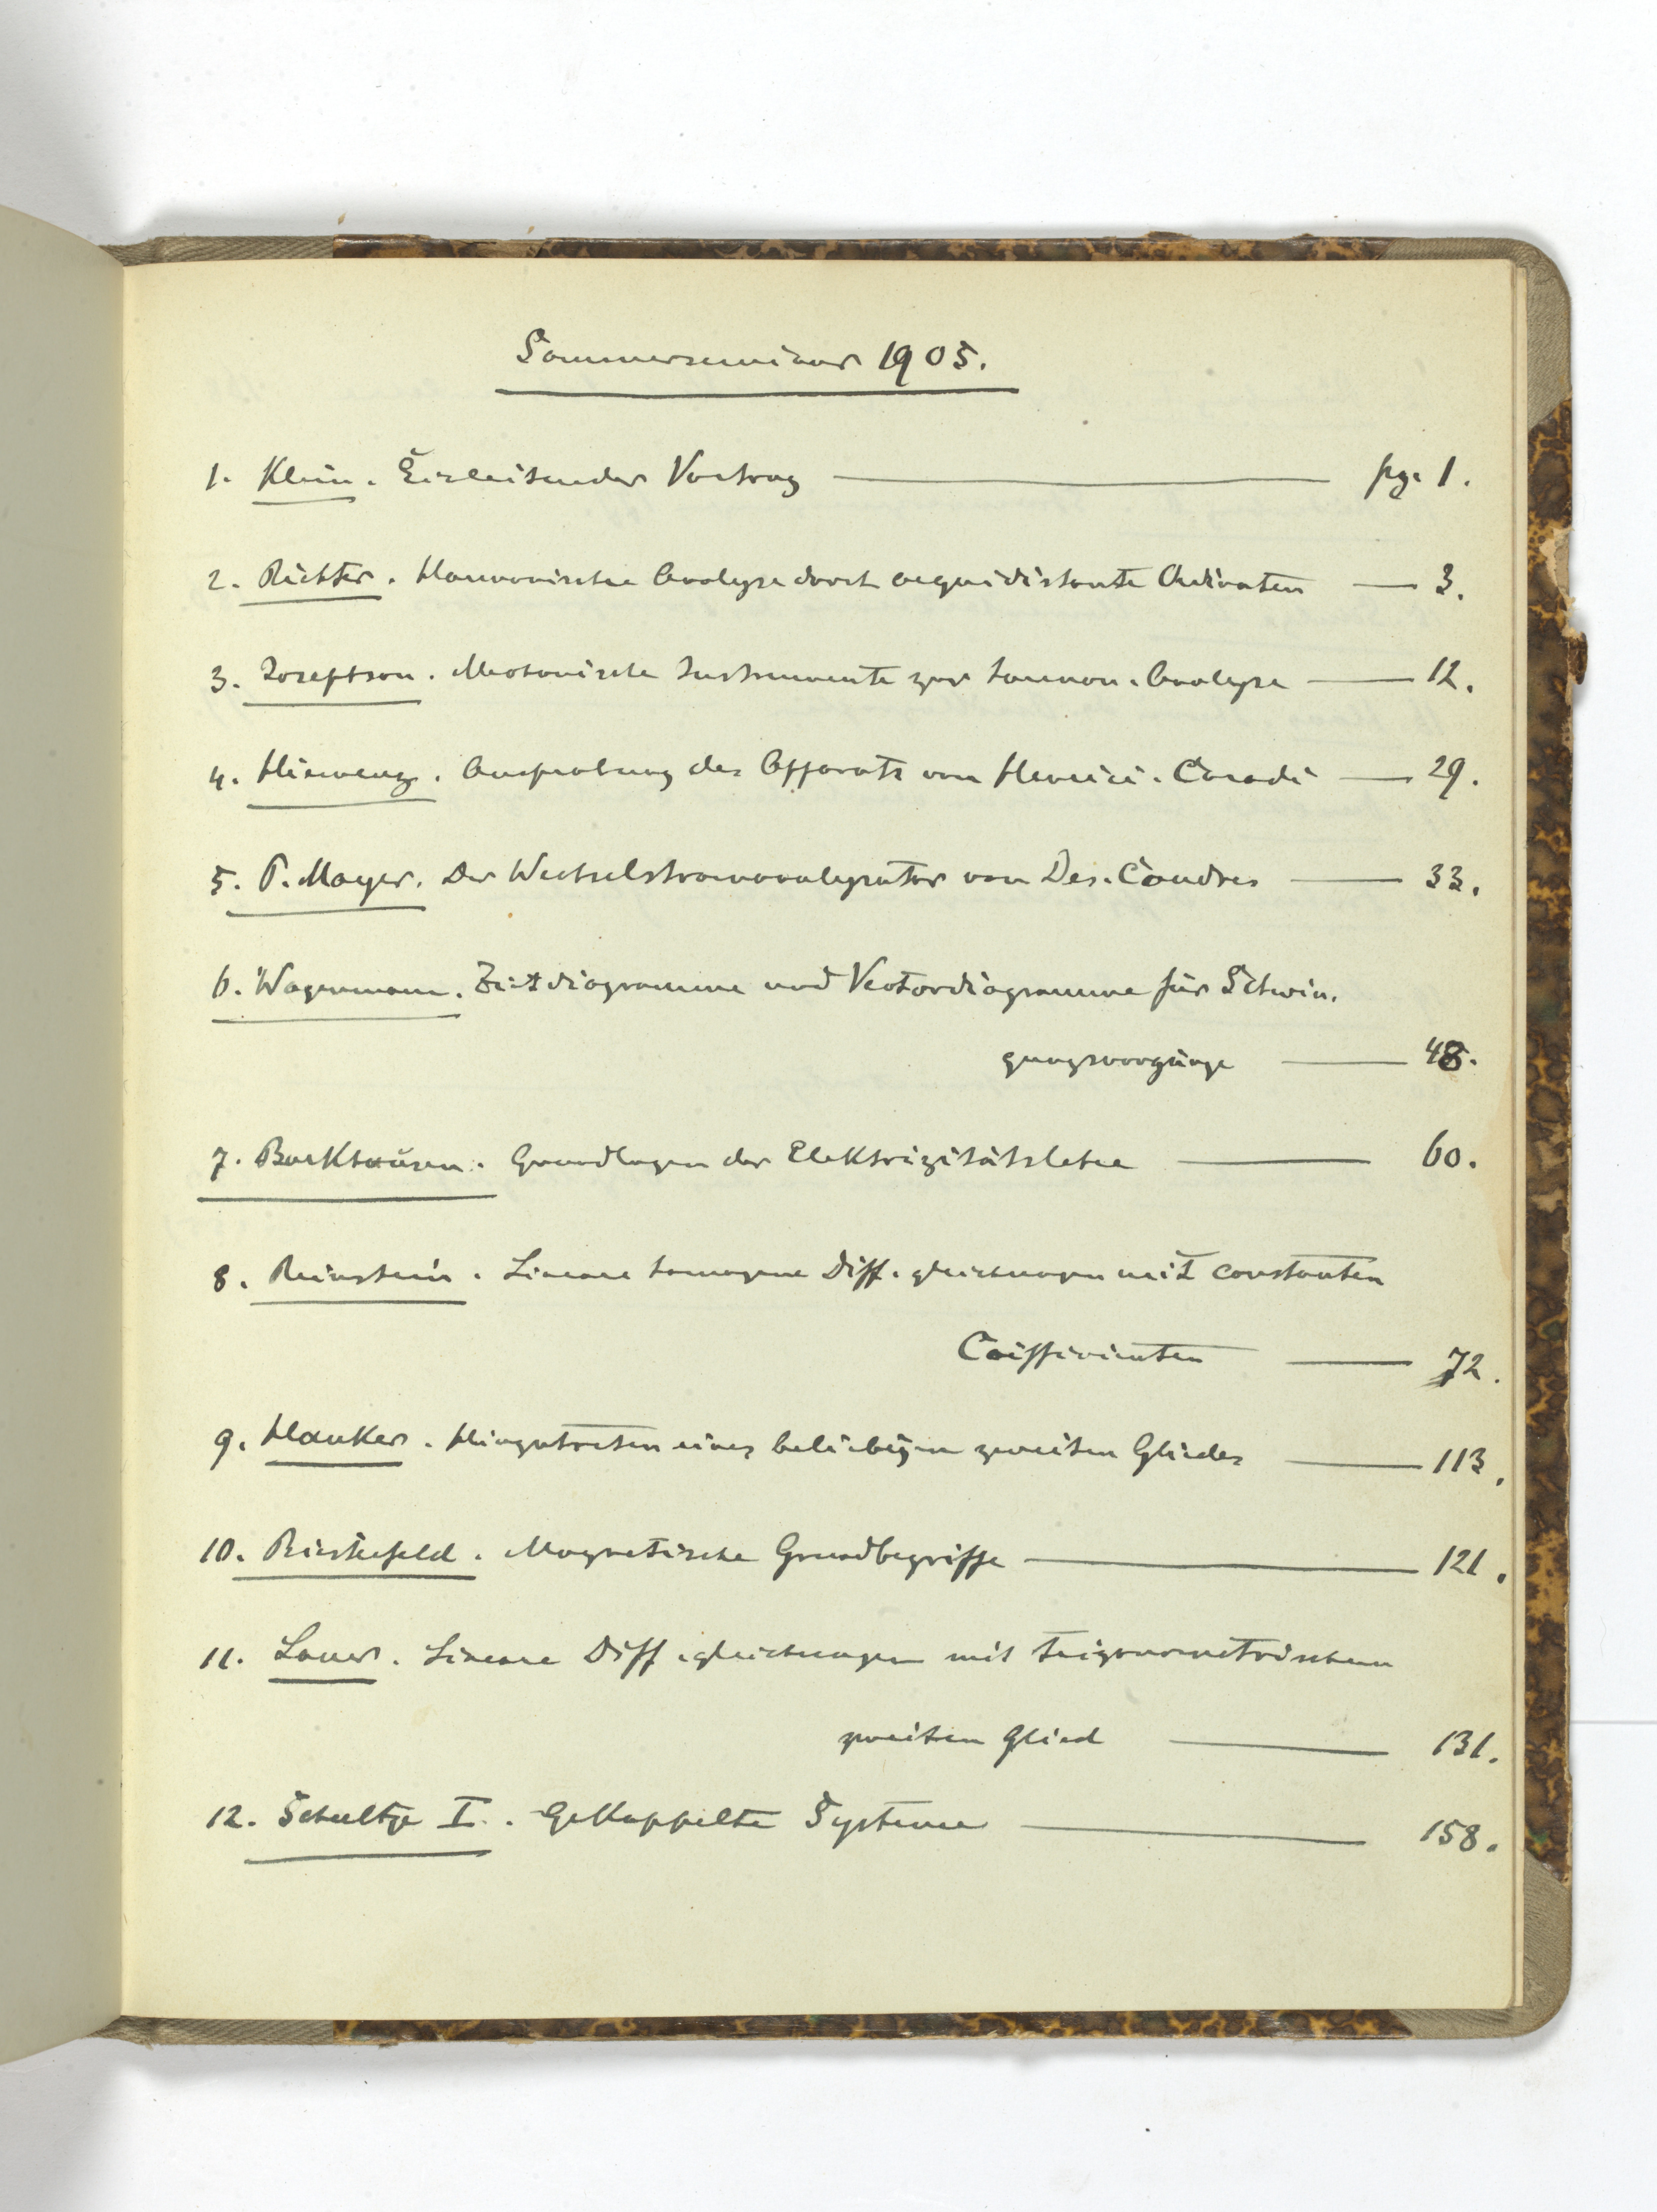 Sommerseminar 1905.
1. Klein. Einleitender Vortrag — pg. 1.
2. Richter. Harmonische Analyse durch aequidistante Ordinaten — 3.
3. Josephson. Mechanische Instrumente zur harmon. Analyse — 12.
4. Hiemenz. Ausprobung des Apparats von Henrici-Coradi — 29.
5. P. Mayer. Der Wechselstromanalysator von Des-Coudres — 33.
6. Wagenmann. Zeitdiagramme und Vectordiagramme für Schwin-
gungsvorgänge — 48.
7. Barkhausen. Grundlagen der Elektrizitätslehre — 60.
8. Reinstein. Lineare homogene Diff.gleichungen mit constanten
Coëfficienten — 72.
9. Hanker. Hinzutreten eines beliebigen zweiten Gliedes — 113.
10. Biestefeld. Magnetische Grundbegriffe — 121.
11. Lauer. Lineare Diff.gleichungen mit trigonometrischem
zweiten Glied — 131.
12. Schultze I. Gekoppelte Systeme — 158.